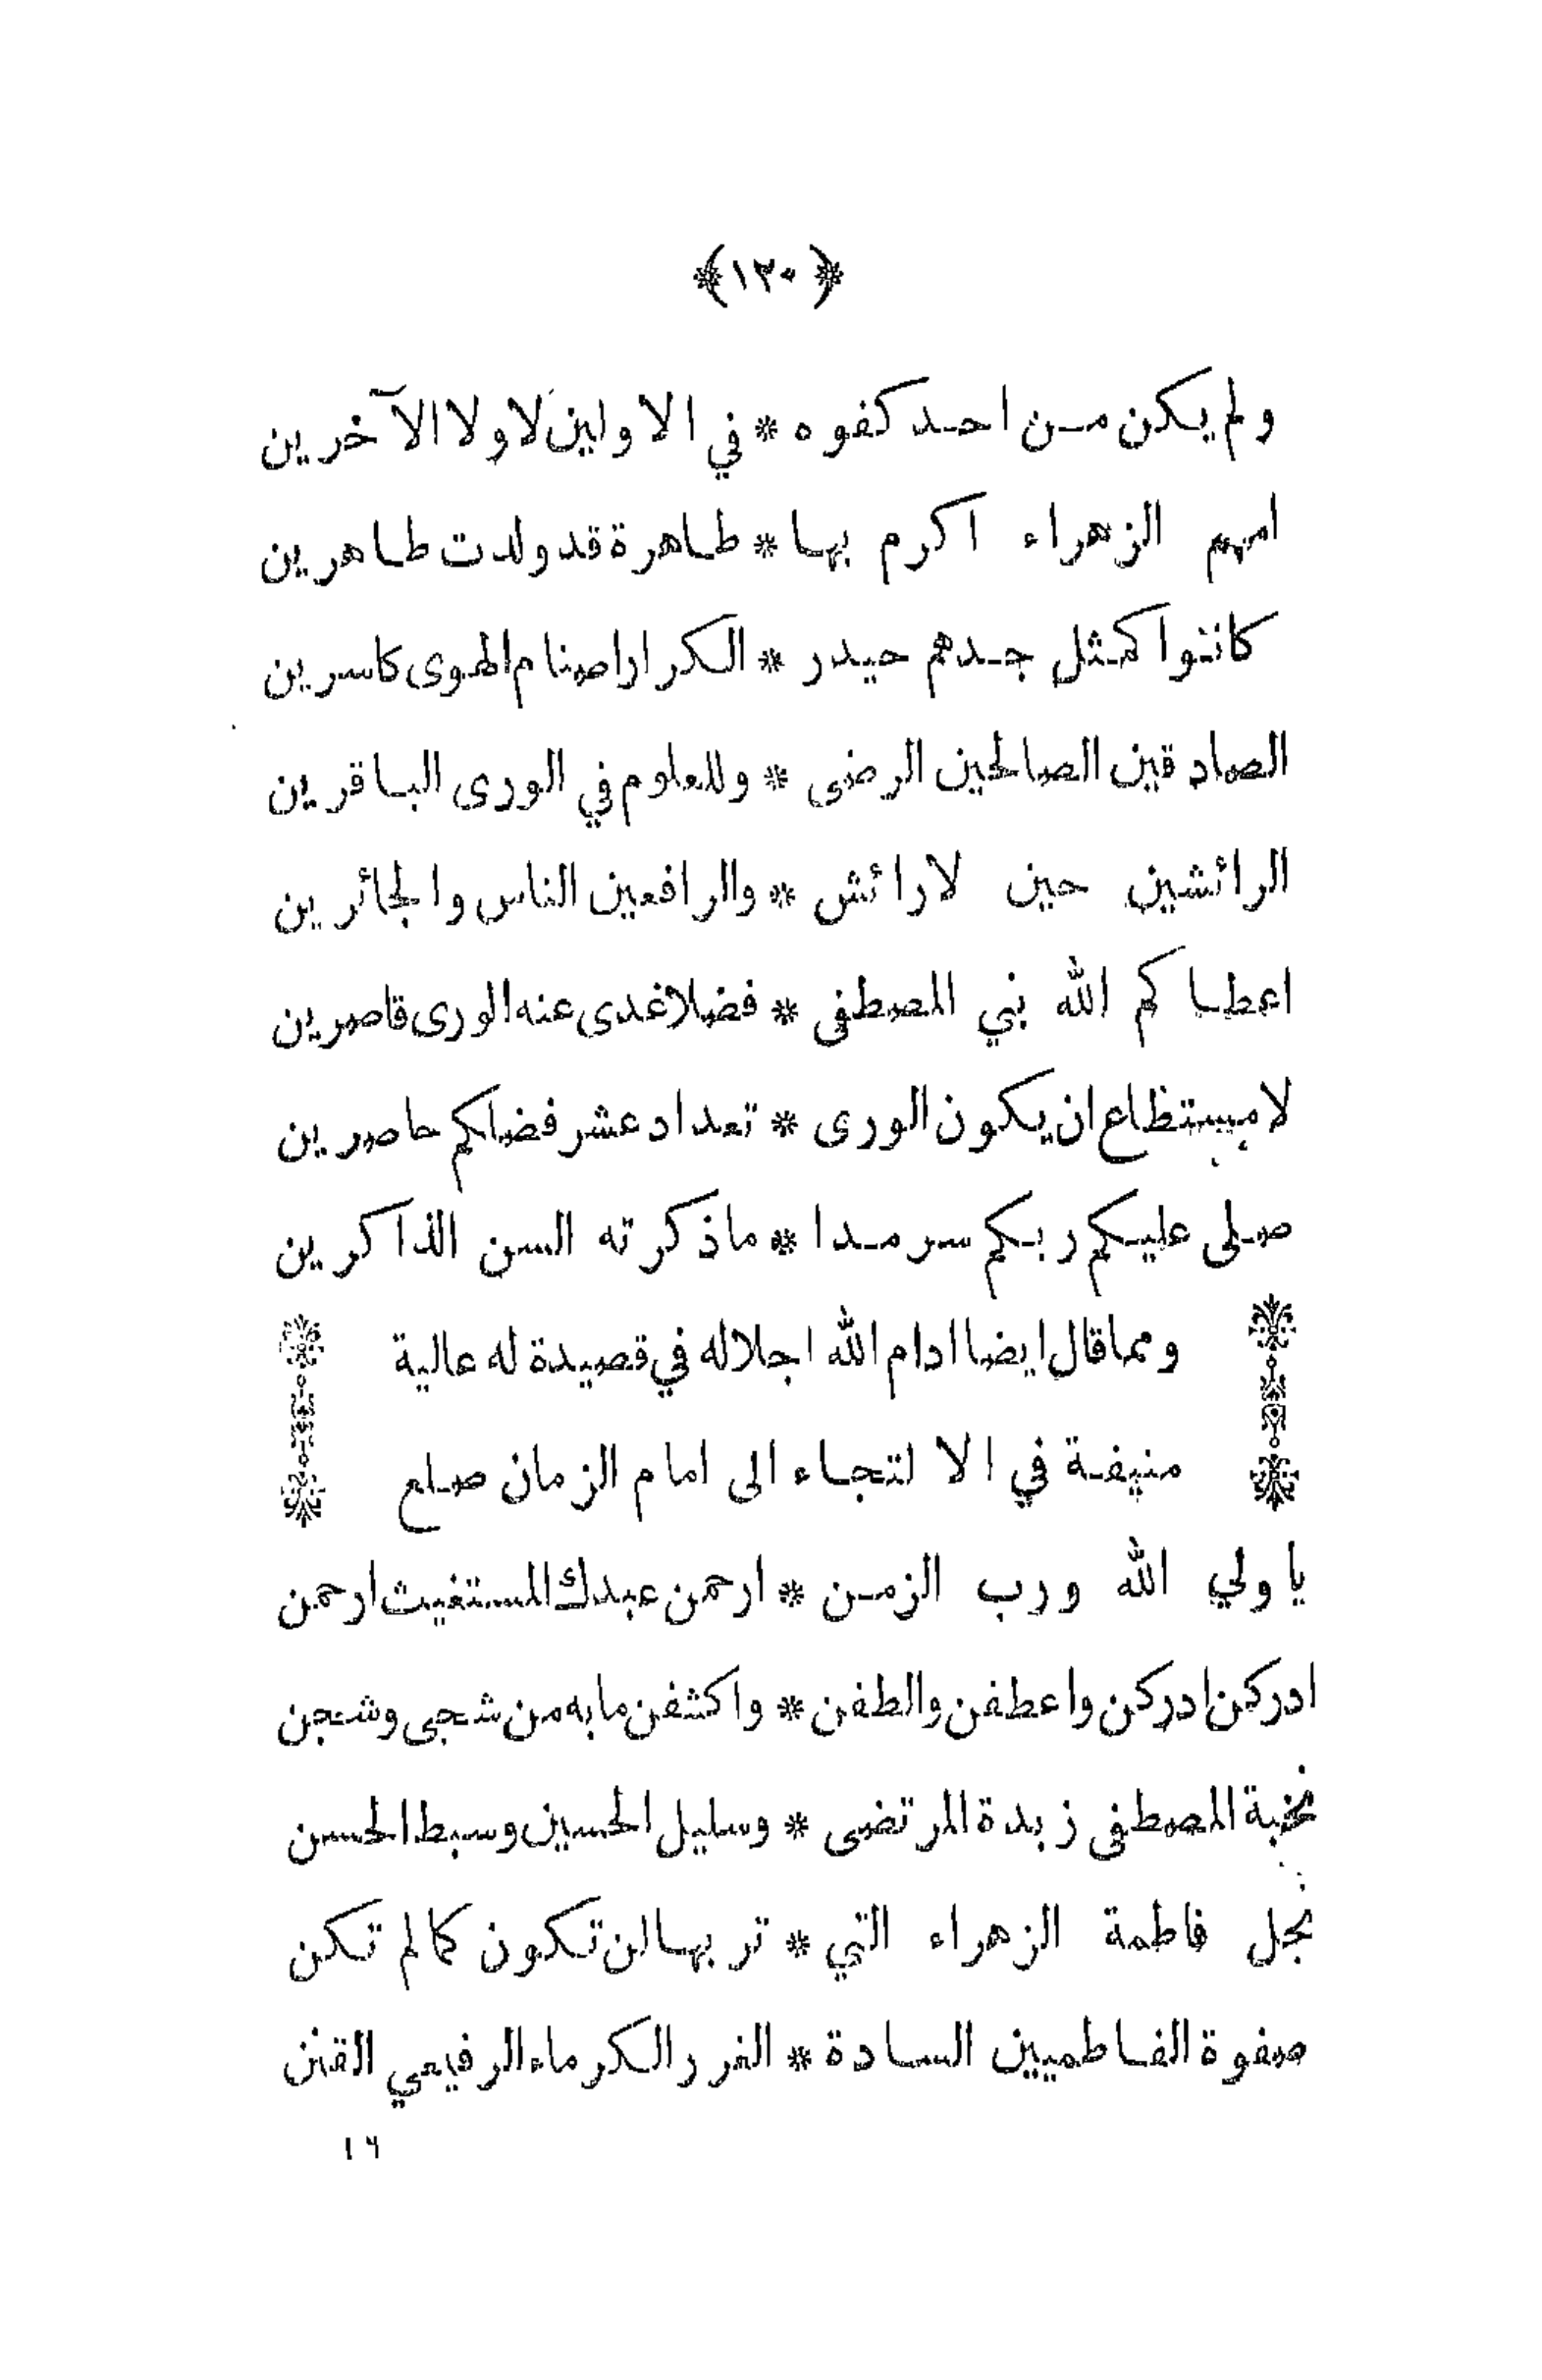 ﴿١٢٠﴾
ولم يكن من احد كفوه * في الاولين لا ولا الآخرين
امهم الزهراء اكرم بها * طاهرة قد ولدت طاهرين
كانوا كمثل جدهم حيدر * الكرار اصنام الهوى كاسرين
الصادقين الصالحين الرضى * وللعلوم في الورى الباقرين
الرائشين حين لا رائش * والرافعين الناس والجائرين
اعطاكم الله بني المصطفى * فضلا غدى عنه الورى قاصرين
لا مستطاع ان يكون الورى * تعداد عشر فضلكم حاصرين
صلى عليكم ربكم سرمدا * ما ذكرته السن الذاكرين
ومما قال ايضا ادام الله اجلاله في قصيدة له عالية
منيفة في الالتجاء الى امام الزمان صلع
يا ولي الله ورب الزمن * ارحمن عبدك المستغيث ارحمن
ادركن ادركن واعطفن والطفن * واكشفن ما به من شجى وشجن
نخبة المصطفى زبدة المرتضى * وسليل الحسين وسبط الحسن
نجل فاطمة الزهراء التي * تربها لن تكون كما لم تكن
صفوة الفاطميين السادة * الغرر الكرماء الرفيعي القنن
١٦